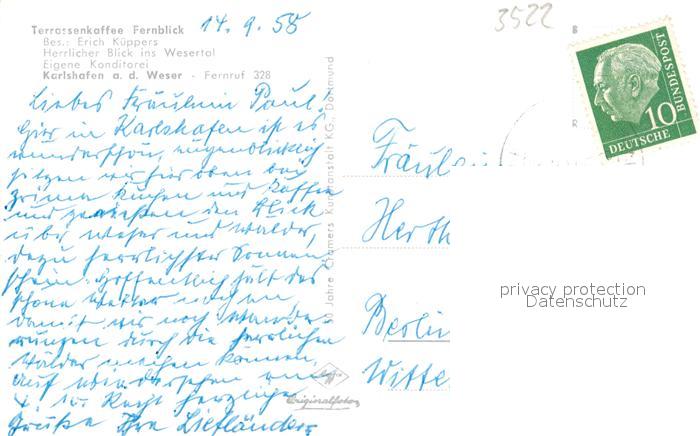 Terrassenkaffee Fernblick
Bes.: Erich Küppers
Herrlicher Blick ins Wesertal
Eigene Konditorei
Karlshafen a. d. Weser - Fernruf 328
14.9.58
Liebes Fräulein Paul,
Hier in Karlshafen ist es
wunderschön, augenblicklich
sitzen wir hier oben bei
prima Kuchen und Kaffee
und genießen den Blick
über Weser und Wälder,
dazu herrlichster Sonnen
schein. Hoffentlich hält das
schöne Wetter noch an
damit wir noch Wande-
rungen durch die herrlichen
Wälder machen können.
Auf Wiedersehen am
Recht herzliche
Grüße Ihre Liefländer
Jahre Cramers Kunstanstalt KG., Dortmund
Originalfoto
3522
Fräul
Herth
Berlin
Witte
DEUTSCHE BUNDESPOST
10
privacy protection
Datenschutz